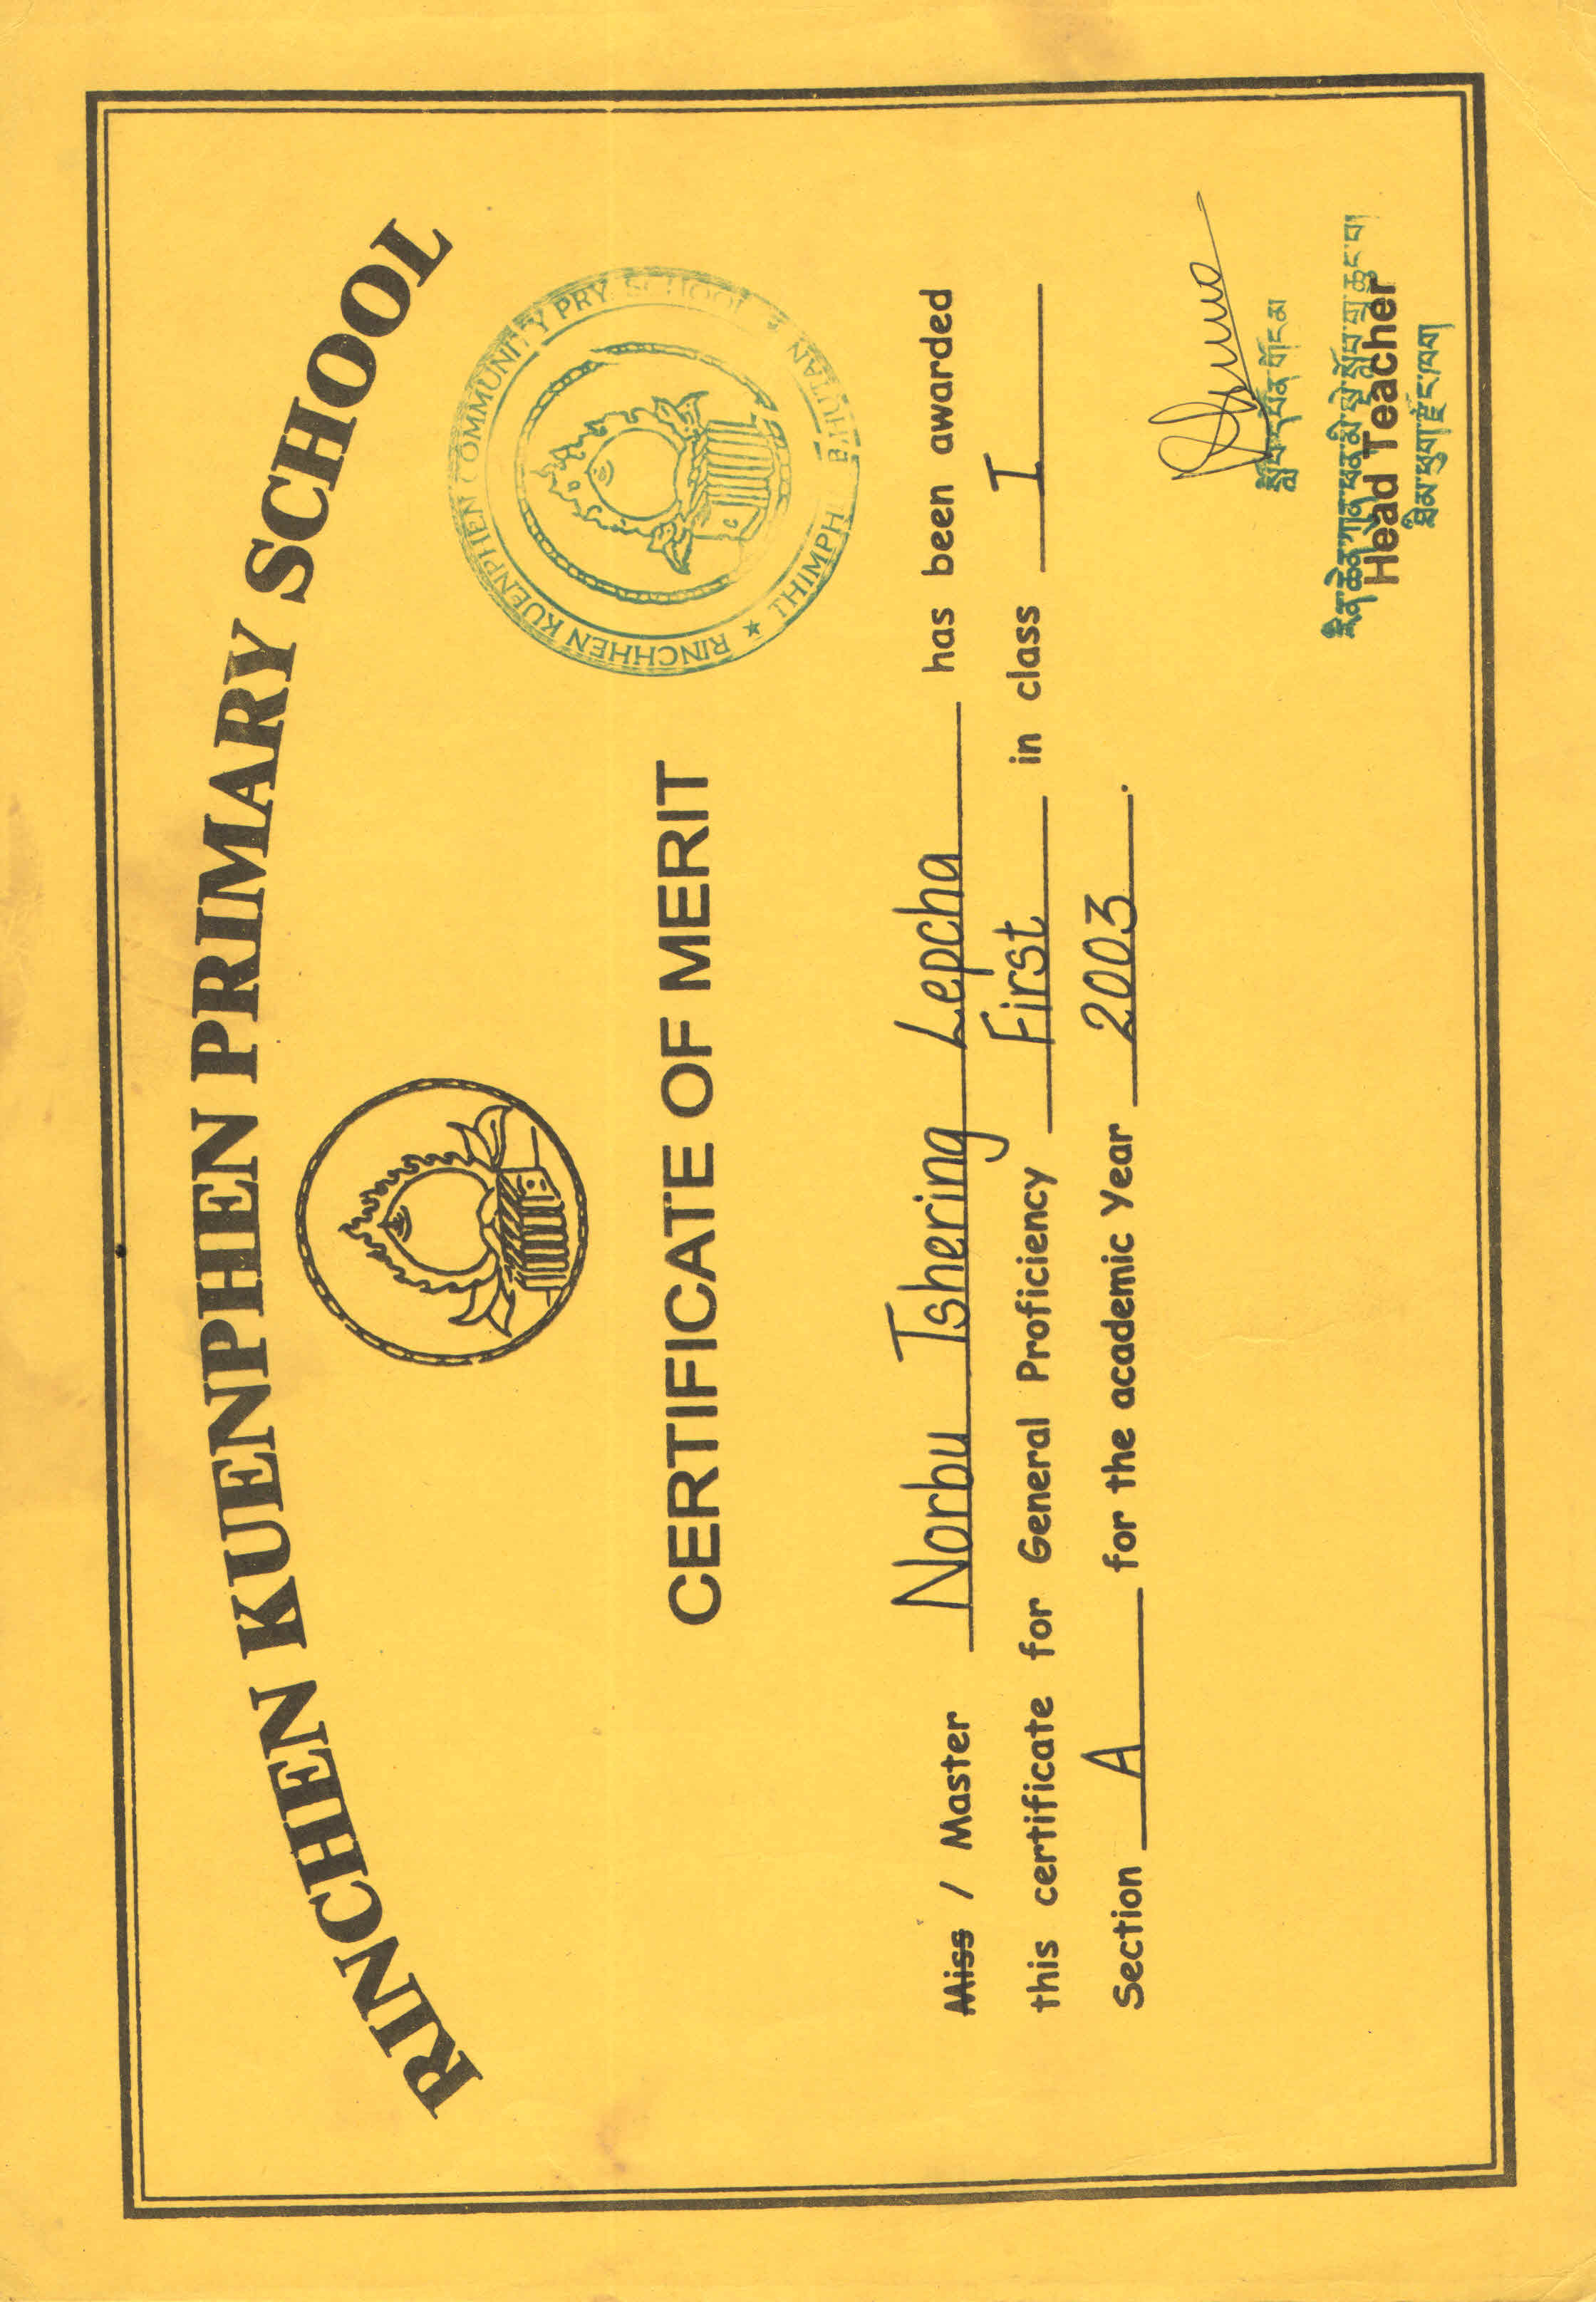 RINCHEN KUENPHEN PRIMARY SCHOOL
RINCHHEN KUENPHEN COMMUNITY PRY SCHOOL
THIMPHU BHUTAN
CERTIFICATE OF MERIT
Miss / Master Norbu Tshering Lepcha has been awarded
this certificate for General Proficiency First in class I
Section A for the academic Year 2003.
སློབ་དཔོན་གོང་མ
རིན་ཆེན་ཀུན་ཕན་མི་སྡེ་སློབ་གྲྭ་ཆུང་བ།
Head Teacher
ཐིམ་ཕུག་རྫོང་ཁག།